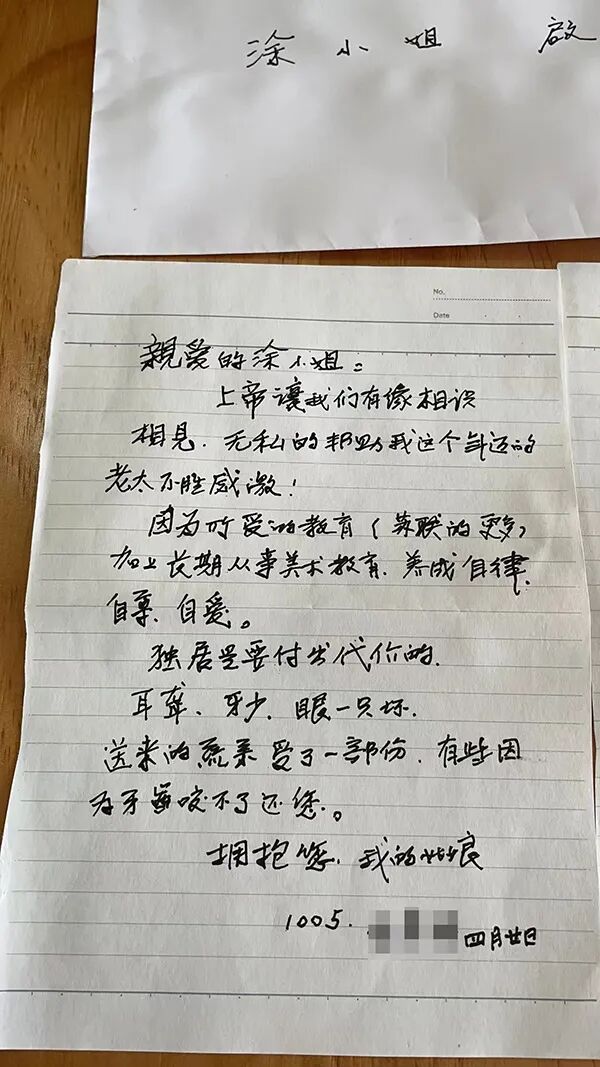 涂小姐 啟
No.
Date
親爱的涂小姐：
上帝讓我们有缘相识
相見．无私的帮助我这个年迈的
老太不胜感激！
因为所受的教育（苏联的更多）
加上长期从事美术教育．养成自律．
自尊．自爱。
独居是要付出代价的．
耳聋、牙少．眼一只坏．
送来的蔬菜受了一部份．有些因
为牙齒咬不了还您。
拥抱您．我的姑娘
1005. 四月廿日